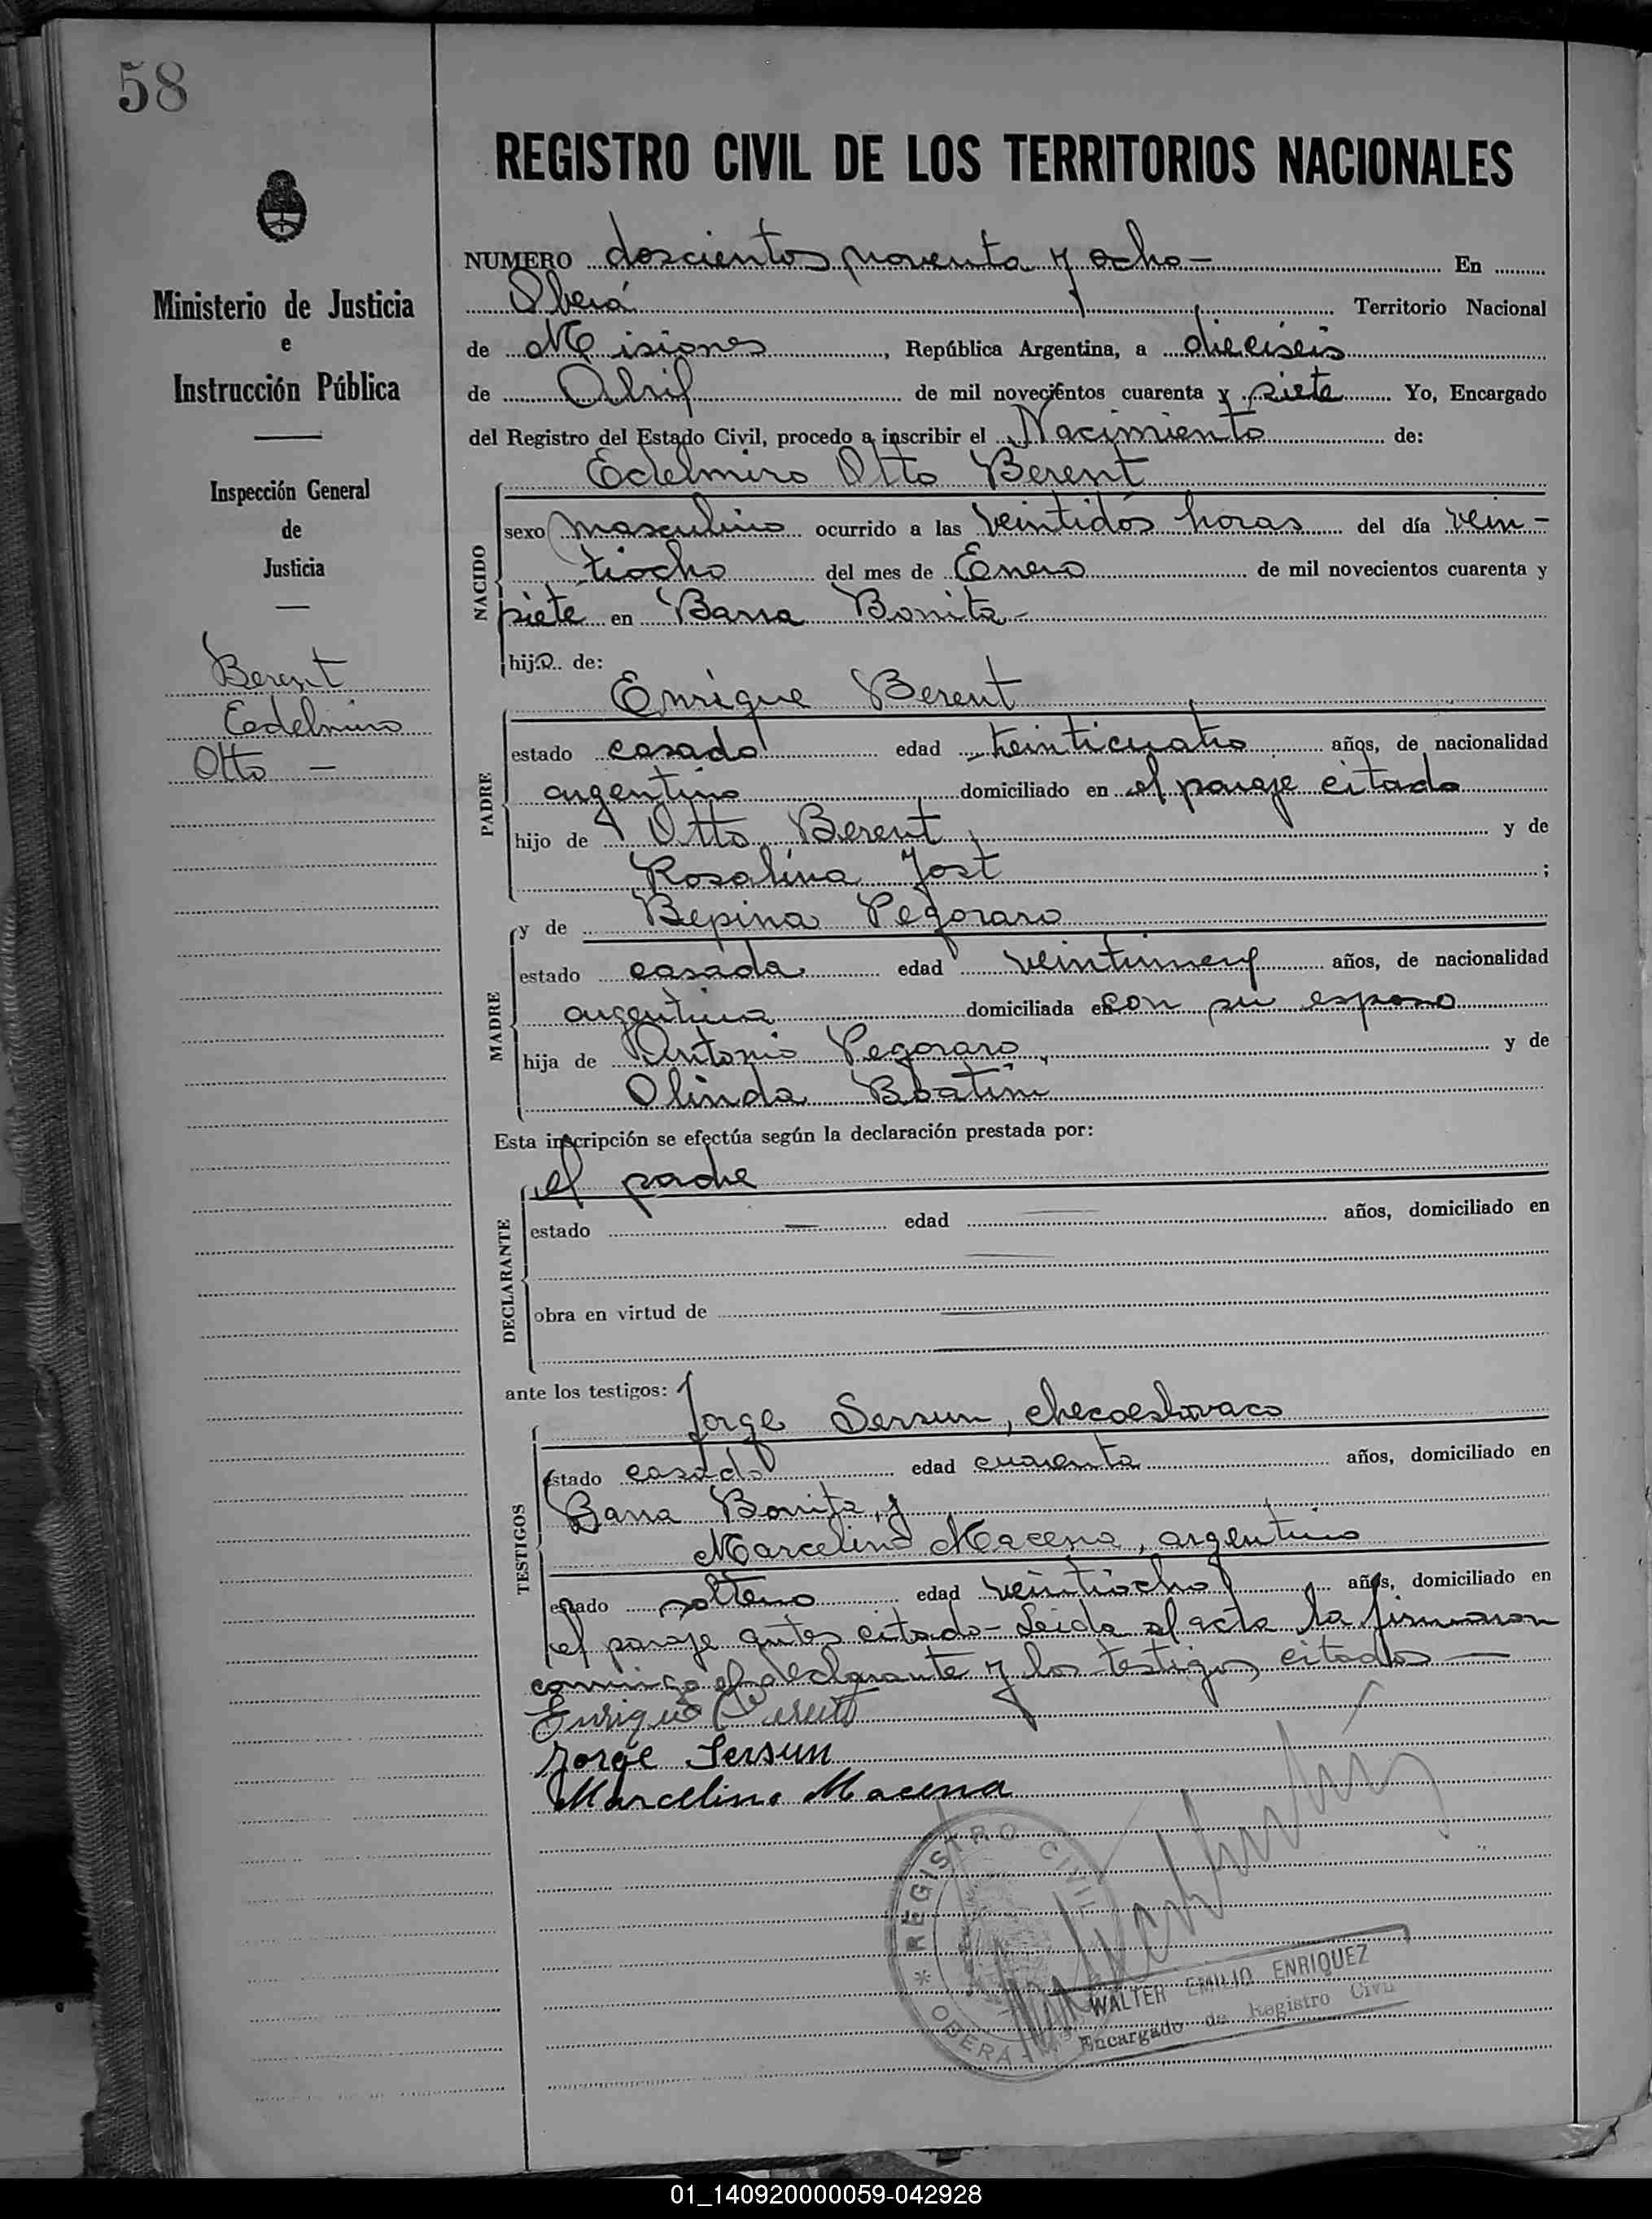 58
REGISTRO CIVIL DE LOS TERRITORIOS NACIONALES
Ministerio de Justicia
e
Instrucción Pública
Inspección General
de
Justicia
Berent
Eedelmiro
Otto —
NUMERO doscientos noventa y ocho - En
Oberá Territorio Nacional
de Misiones, República Argentina, a dieciseis
de Abril de mil novecientos cuarenta y siete Yo, Encargado
del Registro del Estado Civil, procedo a inscribir el Nacimiento de:
Edelmiro Otto Berent
NACIDO
sexo masculino ocurrido a las veintidós horas del día vein-
tiocho del mes de Enero de mil novecientos cuarenta y
siete en Barra Bonita -
hijo de:
Enrique Berent
PADRE
estado casado edad veinticuatro años, de nacionalidad
argentino domiciliado en el paraje citado
hijo de Otto Berent y de
Rosalina Jost ;
y de Bepina Pegoraro
MADRE
estado casada edad años, de nacionalidad
argentina domiciliada en con su esposo
hija de Antonio Pegoraro, y de
Olinda Boatini
Esta inscripción se efectúa según la declaración prestada por:
el padre
DECLARANTE
estado — edad — años, domiciliado en
—
obra en virtud de —
—
ante los testigos:
Jorge Sersun, checoeslovaco
TESTIGOS
estado casado edad cuarenta años, domiciliado en
Barra Bonita, y
Marcelino Macena, argentino
estado soltero edad veintiocho años, domiciliado en
el paraje antes citado - Leida el acta la firmaron
conmigo el declarante y los testigos citados —
Enrique Berent
Jorge Sersun
Marcelino Macena
REGISTRO CIVIL
* OBERA -
WALTER EMILIO ENRIQUEZ
Encargado de Registro Civil
01_140920000059-042928